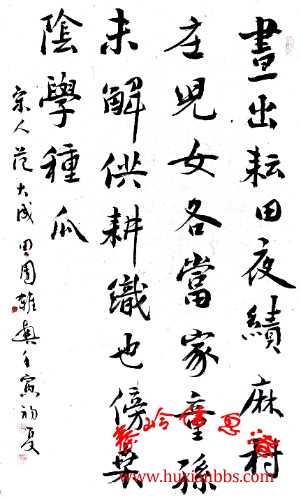 晝出耘田夜績麻村
庄兒女各當家童孫
未解供耕織也傍桑
陰學種瓜
宋人范大成田園雜興壬寅初夏
www.huxianbbs.com